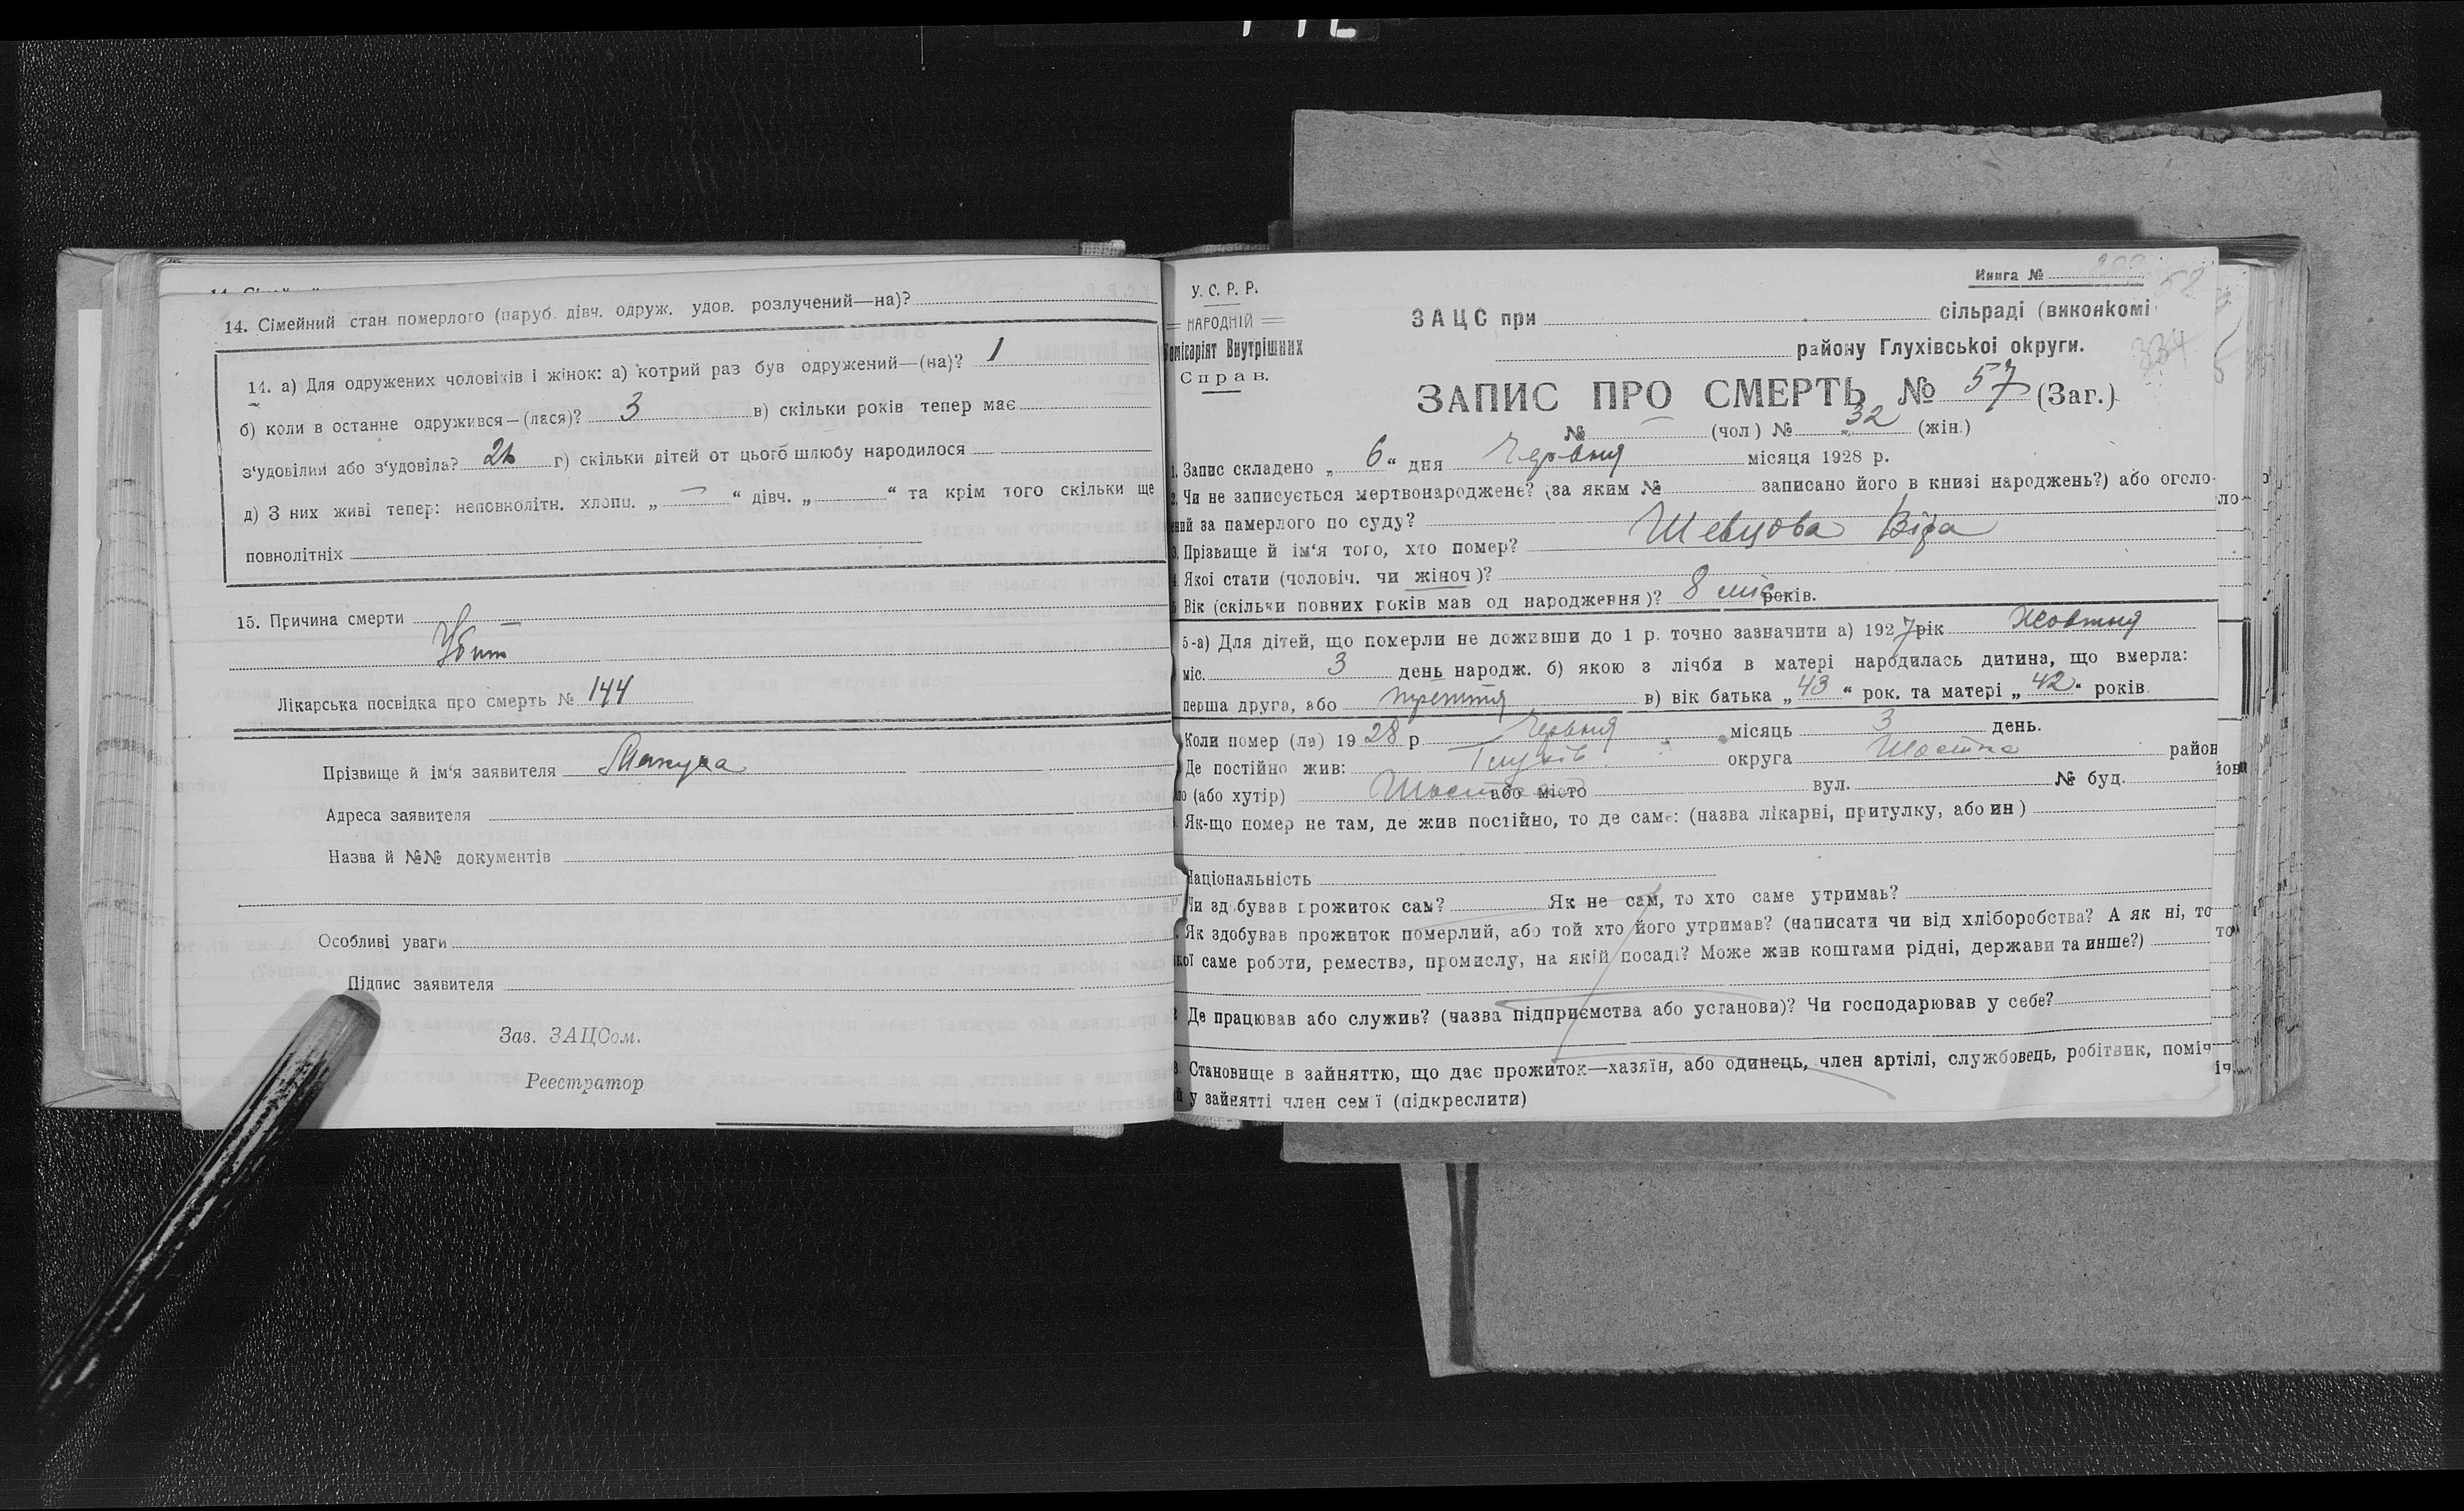 14. Сімейний стан померлого (паруб. дівч. одруж. удов. розлучений—на)?
14. а) Для одружених чоловіків і жінок: а) котрий раз був одружений—(на)? 1
б) коли в останне одружився—(лася)? 3 в) скільки років тепер має
з'удовілий або з'удовіла? г) скільки дітей от цього шлюбу народилося
д) З них живі тепер: неповнолітн. хлопц. „ — “ дівч. „ “ та крім того скільки ще
повнолітніх
15. Причина смерти
Убит
Лікарська посвідка про смерть № 144
Прізвище й ім'я заявителя
Адреса заявителя
Назва й №№ документів
Особливі уваги
Підпис заявителя
Зав. ЗАЦСом.
Реєстратор
Книга №
У. С. Р. Р.
НАРОДНІЙ
Комісаріят Внутрішних
Справ.
ЗАЦС при сільраді (виконкомі
району Глухівської округи.
334
ЗАПИС ПРО СМЕРТЬ № 57 (Заг.)
№ — (чол) № 32 (жін.)
1. Запис складено „ 6 “ дня Червня місяця 1928 р.
2. Чи не записується мертвонароджене? (за яким № записано його в книзі народжень?) або оголо-
ений за памерлого по суду?
3. Прізвище й ім'я того, хто помер? Шевцова Віра
4. Якої стати (чоловіч. чи жіноч)?
5 Вік (скільки повних років мав од народження)? 8 міс років.
5-а) Для дітей, що померли не доживши до 1 р. точно зазначити а) 1927 рік Жовтня
міс. 3 день народж. б) якою з лічби в матері народилась дитина, що вмерла:
перша друга, або третття в) вік батька „ 43 “ рок. та матері „ 42 “ років.
Коли помер (ла) 1928 р Червня місяць 3 день.
Де постійно жив: Глухів округа Шостка район
(або хутір) Шостка або місто вул. № буд.
Як-що помер не там, де жив постійно, то де саме: (назва лікарні, притулку, або ин)
Національність
Чи здобував прожиток сам? Як не сам, то хто саме утримав?
Як здобував прожиток померлий, або той хто його утримав? (написати чи від хліборобства? А як ні, то
якої саме роботи, ремества, промислу, на якій посаді? Може жив коштами рідні, держави та инше?)
Де працював або служив? (назва підприємства або установи)? Чи господарював у себе?
Становище в зайняттю, що дає прожиток—хазяїн, або одинець, член артілі, службовець, робітвик, поміч
у зайнятті член сем'ї (підкреслити)